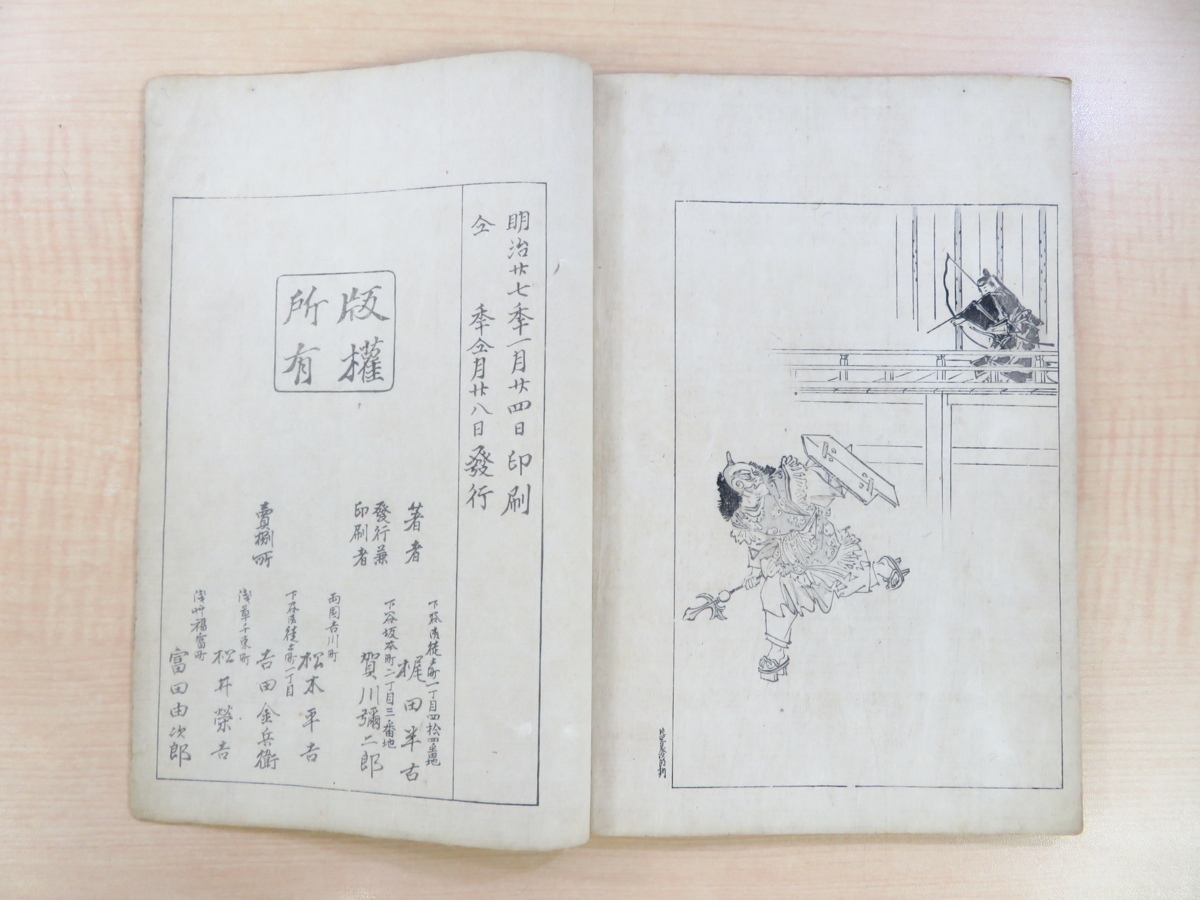 明治廿七季一月廿四日印刷
仝 季仝月廿八日發行
版權
所有
著者
下谷御徒士町一丁目四拾四番地
梶田半古
發行兼
印刷者
下谷坂本町二丁目三番地
賀川彌二郎
賣捌所
両国吉川町
松木平吉
下谷御徒士町一丁目
吉田金兵衛
浅草千束町
松井榮吉
浅艸福富町
富田由次郎